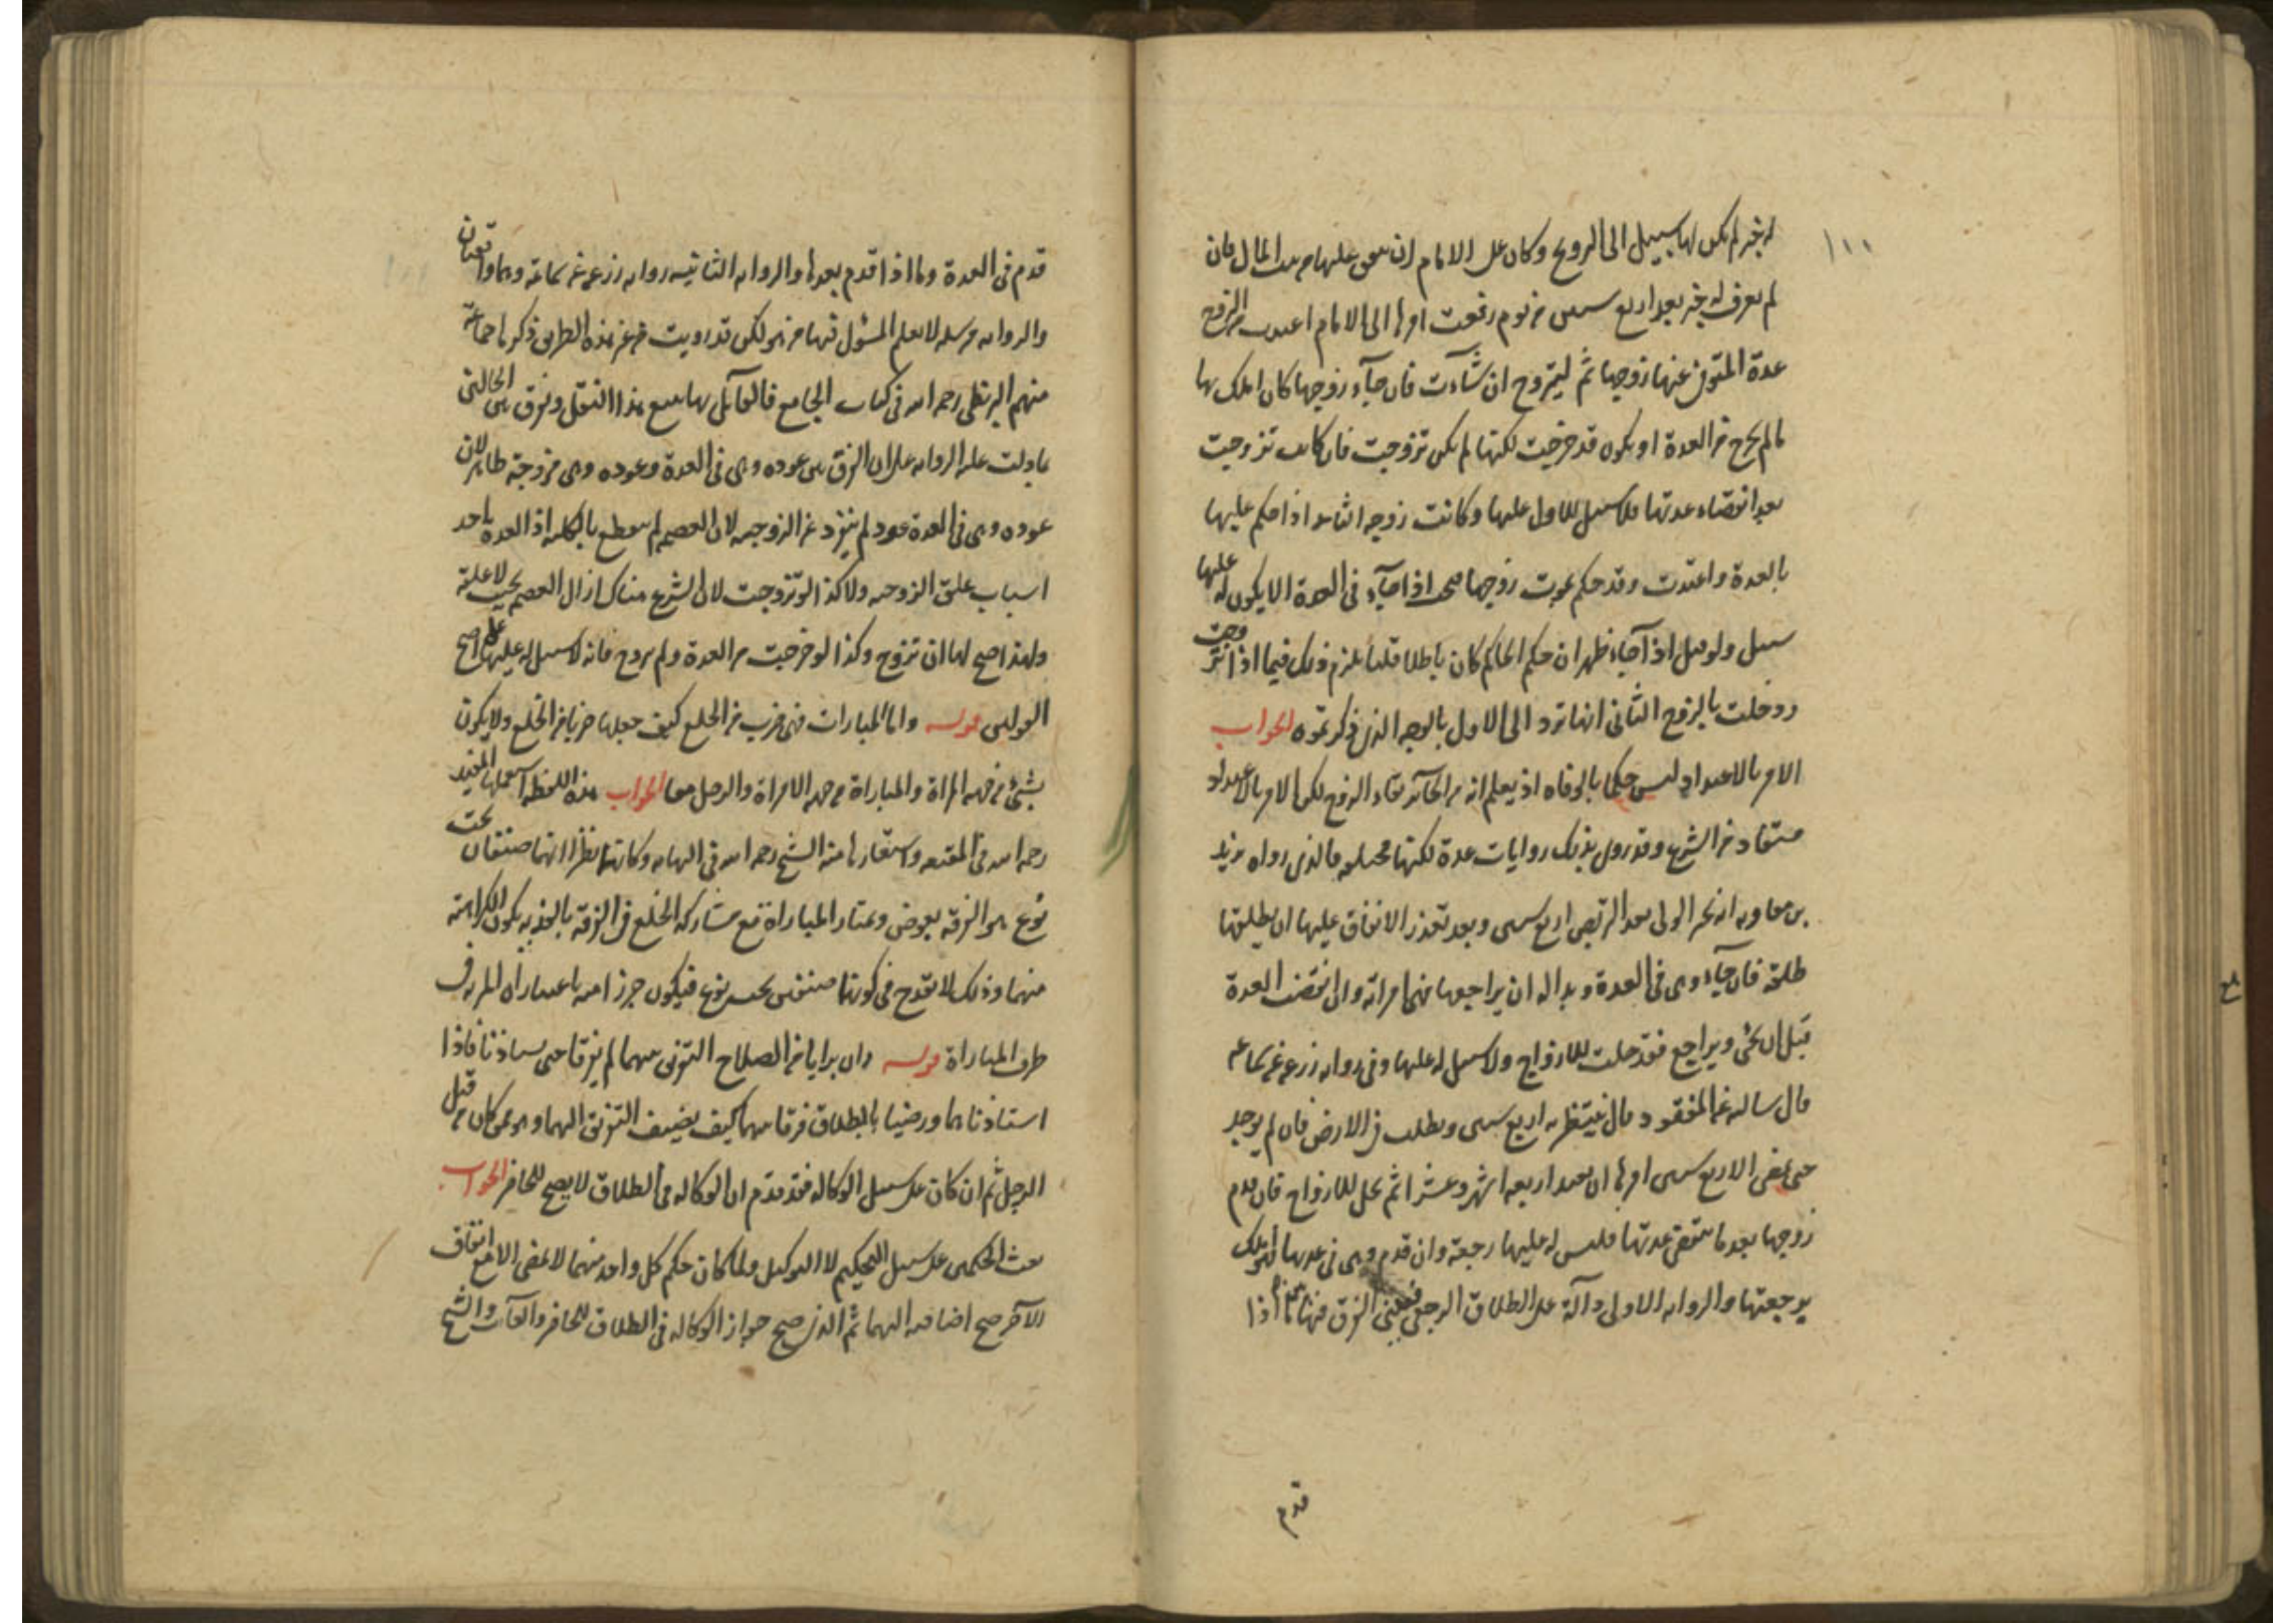 ١٠٠
له خبر لم يكن لها سبيل الى التزويج وكان على الامام ان ينفق عليها من بيت المال فان
لم يعرف له خبر بعد اربع سنين من يوم رفعت امرها الى الامام اعتدت من الزوج
عدة المتوفى عنها زوجها ثم ليتزوج ان شاءت فان جآء زوجها كان املك بها
ما لم يخرج من العدة او يكون قد خرجت لكنها لم يكن تزوجت فان كانت تزوجت
بعد انقضاء عدتها فلا سبيل للاول عليها وكانت زوجه الثانى اذا حكم عليها
بالعدة واعتدت وقد حكم بموت زوجها صح اذا جآء فى العدة الا يكون له عليها
سبيل ولو قيل اذا جآء ظهر ان حكم الحاكم كان باطلا قلنا يلزم ذلك فيما اذا تزوجت
ودخلت بالزوج الثانى انها ترد الى الاول بالوجه الذى ذكرتموه الجواب
الامر بالاعتداد ليس حكما بالوفاه اذ يعلم انه من الجآئز بقاء الزوج لكن الامر بالاعتداد
مستفاد من الشرع وقد روى بذلك روايات عدة لكنها مختلفه فالذى رواه بريد
بن معاويه انه يخبر الولى بعد التربص اربع سنين وبعد تعذر الانفاق عليها ان يطلقها
طلقه فان جآء وهى فى العدة وبدا له ان يراجعها فهى امراته وان انقضت العدة
قبل ان يجئ ويراجع فقد حلت للازواج ولا سبيل له عليها وفى روايه زرعه عن سماعه
قال سالته عن المفقود قال ينتظر به اربع سنين ويطلب فى الارض فان لم يوجد
حتى يمضى الاربع سنين امرها ان تعتد اربعه اشهر وعشرا ثم تحل للازواج فان قدم
زوجها بعد ما تنقضى عدتها فليس له عليها رجعة وان قدم وهى فى عدتها فهو املك
برجعتها والروايه الاولى دآلة على الطلاق الرجعى الفرق فيها اذا
قدم
قدم فى العدة وما اذا قدم بعدها والروايه الثانيه روايه زرعه عن سماعة وهما واقفيان
والروايه مرسله لا يعلم المسئول فيها من هو لكن قد رويت من غير هذه الطريق ذكرها جماعة
منهم البزنطى رحمه الله فى كتاب الجامع فالقآئل بها يتبع هذا النقل وفرق بين الحالتين
بما دلت عليه الروايه على ان الفرق بين عوده وهى فى العدة وعوده وهى مزوجة ظاهر لان
عوده وهى فى العدة عود لم ينفرد عن الزوجيه لان العصمه لم ينقطع بالكليه اذ العدة احد
اسباب علق الزوجيه ولا كذا لو تزوجت لان الشرع هناك ازال العصمه بحيث لا علقة
ولهذا صح لها ان تزوج وكذا لو خرجت من العدة ولم تزوج فانه لا سبيل له عليها على اصح
القولين قوله واما المبارات فهى ضرب من الخلع كيف جعلها ضربا من الخلع ولا يكون
بشئ من جهه المراة والمباراة من جهه الامراة والرجل معا الجواب هذه اللفظه استعملها المفيد
رحمه الله فى المقنعه واستعارها منه الشيخ رحمه الله فى النهايه وكانهما نظرا انهما صنفان تحت
نوع هو الفرقة بعوض ويمتاز المباراة مع مشاركه الخلع فى الفرقة بالفديه بكون الكراهة
منهما وذلك لا يقدح فى كونهما صنفين تحت نوع
طرف المباراة قوله وان برايا من الصلاح التفريق بينهما لم يفرقا حتى يستاذنا فاذا
استاذناهما ورضيا بالطلاق فرقا بينهما كيف يضيف التفريق اليهما وهو ممن كان من قبل
الرجل ثم ان كان على سبيل الوكاله فقد تقدم ان الوكاله فى الطلاق لا يصح للحاضر الجواب
بعث الحكمين على سبيل التحكيم لا التوكيل ولما كان حكم كل واحد منهما لا يمضى الا مع اتفاق
الآخر صح اضافته اليهما ثم الذى صح جواز الوكاله فى الطلاق للحاضر والغآئب والشيخ